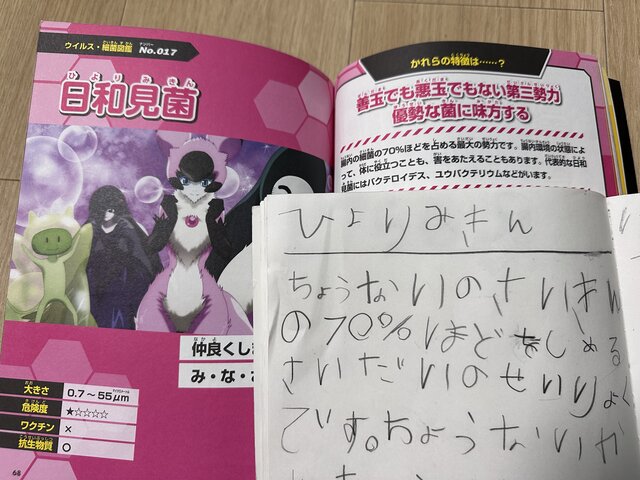 ウイルス・細菌図鑑 No.017
日和見菌
仲良くしま
み・な・さ
大きさ 0.7～55μm
危険度 ★☆☆☆☆
ワクチン ×
抗生物質 ○
68
かれらの特徴は……？
善玉でも悪玉でもない第三勢力
優勢な菌に味方する
腸内の細菌の70%ほどを占める最大の勢力です。腸内環境の状態によ
って、体に役立つことも、害をあたえることもあります。代表的な日和
見菌にはバクテロイデス、ユウバクテリウムなどがいます。
ひよりみきん
ちょうないのさいきん
の70%ほどをしめる
さいだいのせいりょく
です。ちょうないか